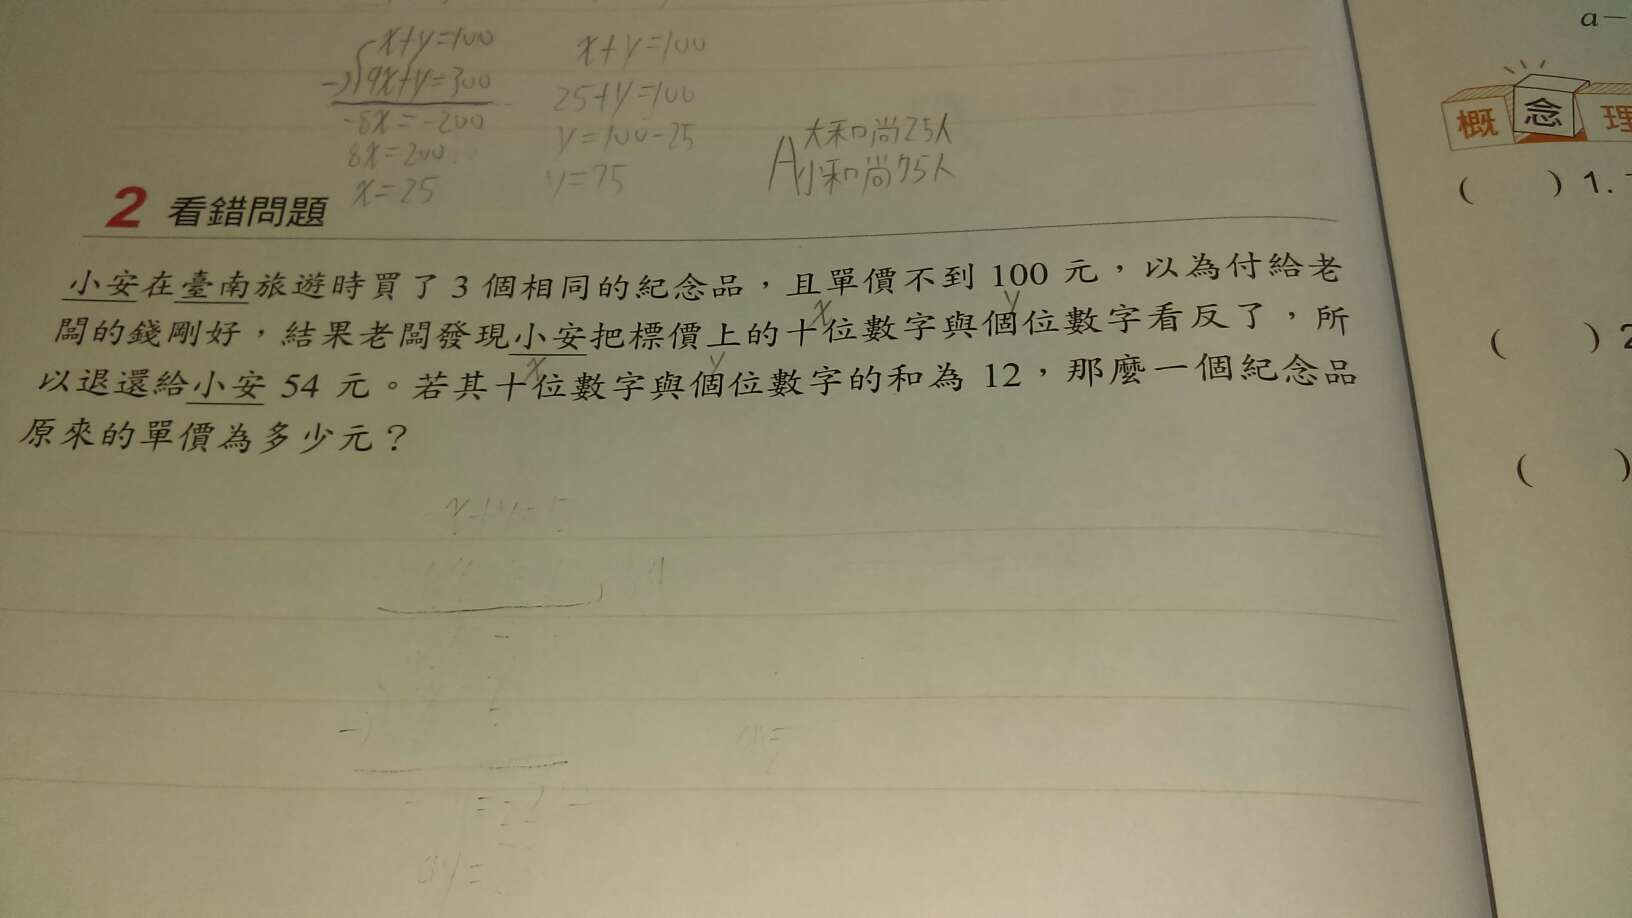 x+y=100
-)9x+y=300
-8x=-200
8x=200
x=25
x+y=100
25+y=100
y=100-25
y=75
A大和尚25人
小和尚75人
2 看錯問題
小安在臺南旅遊時買了 3 個相同的紀念品，且單價不到 100 元，以為付給老
x y
闆的錢剛好，結果老闆發現小安把標價上的十位數字與個位數字看反了，所
x y
以退還給小安 54 元。若其十位數字與個位數字的和為 12，那麼一個紀念品
原來的單價為多少元？
a－
概念理
( ) 1.
( ) 2
( )